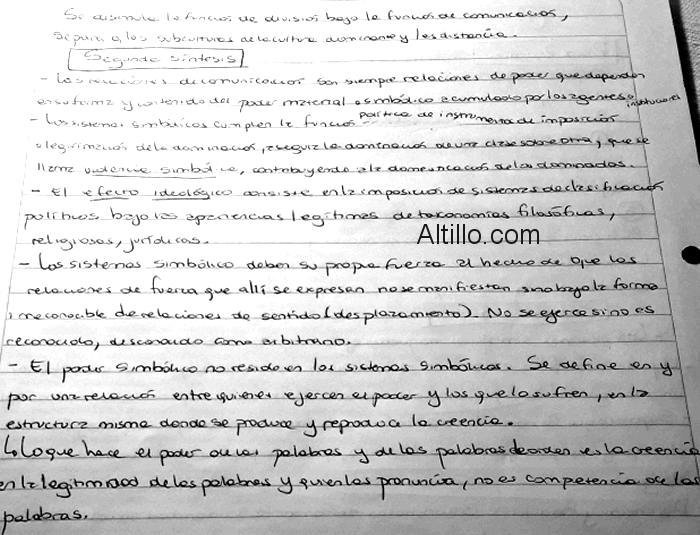 Se disimula la función de división bajo la función de comunicación,
separa a las subculturas de la cultura dominante y las distancia.
Segunda síntesis
- Las relaciones de comunicación son siempre relaciones de poder que dependen
en su forma y contenido del poder material o simbólico acumulado por los agentes o institucionel
- Los sistemas simbólicos cumplen la función política de instrumentos de imposición
o legitimación de la dominación, asegurar la dominación de una clase sobre otra, que se
llama violencia simbólica, contribuyendo a la domesticación de los dominados.
- El efecto ideológico consiste en la imposición de sistemas de clasificación
políticos bajo las apariencias legítimas de taxonomías filosóficas,
religiosas, jurídicas.
Altillo.com
- Los sistemas simbólico deben su propia fuerza al hecho de que las
relaciones de fuerza que allí se expresan no se manifiestan sino bajo la forma
irreconocible de relaciones de sentido (desplazamiento). No se ejerce si no es
reconocido, desconocido como arbitrario.
- El poder simbólico no reside en los sistemas simbólicos. Se define en y
por una relación entre quienes ejercen el poder y los que lo sufren, en la
estructura misma donde se produce y reproduce la creencia.
↳ Lo que hace el poder de las palabras y de las palabras de orden es la creencia
en la legitimidad de las palabras y quien las pronuncia, no es competencia de las
palabras.